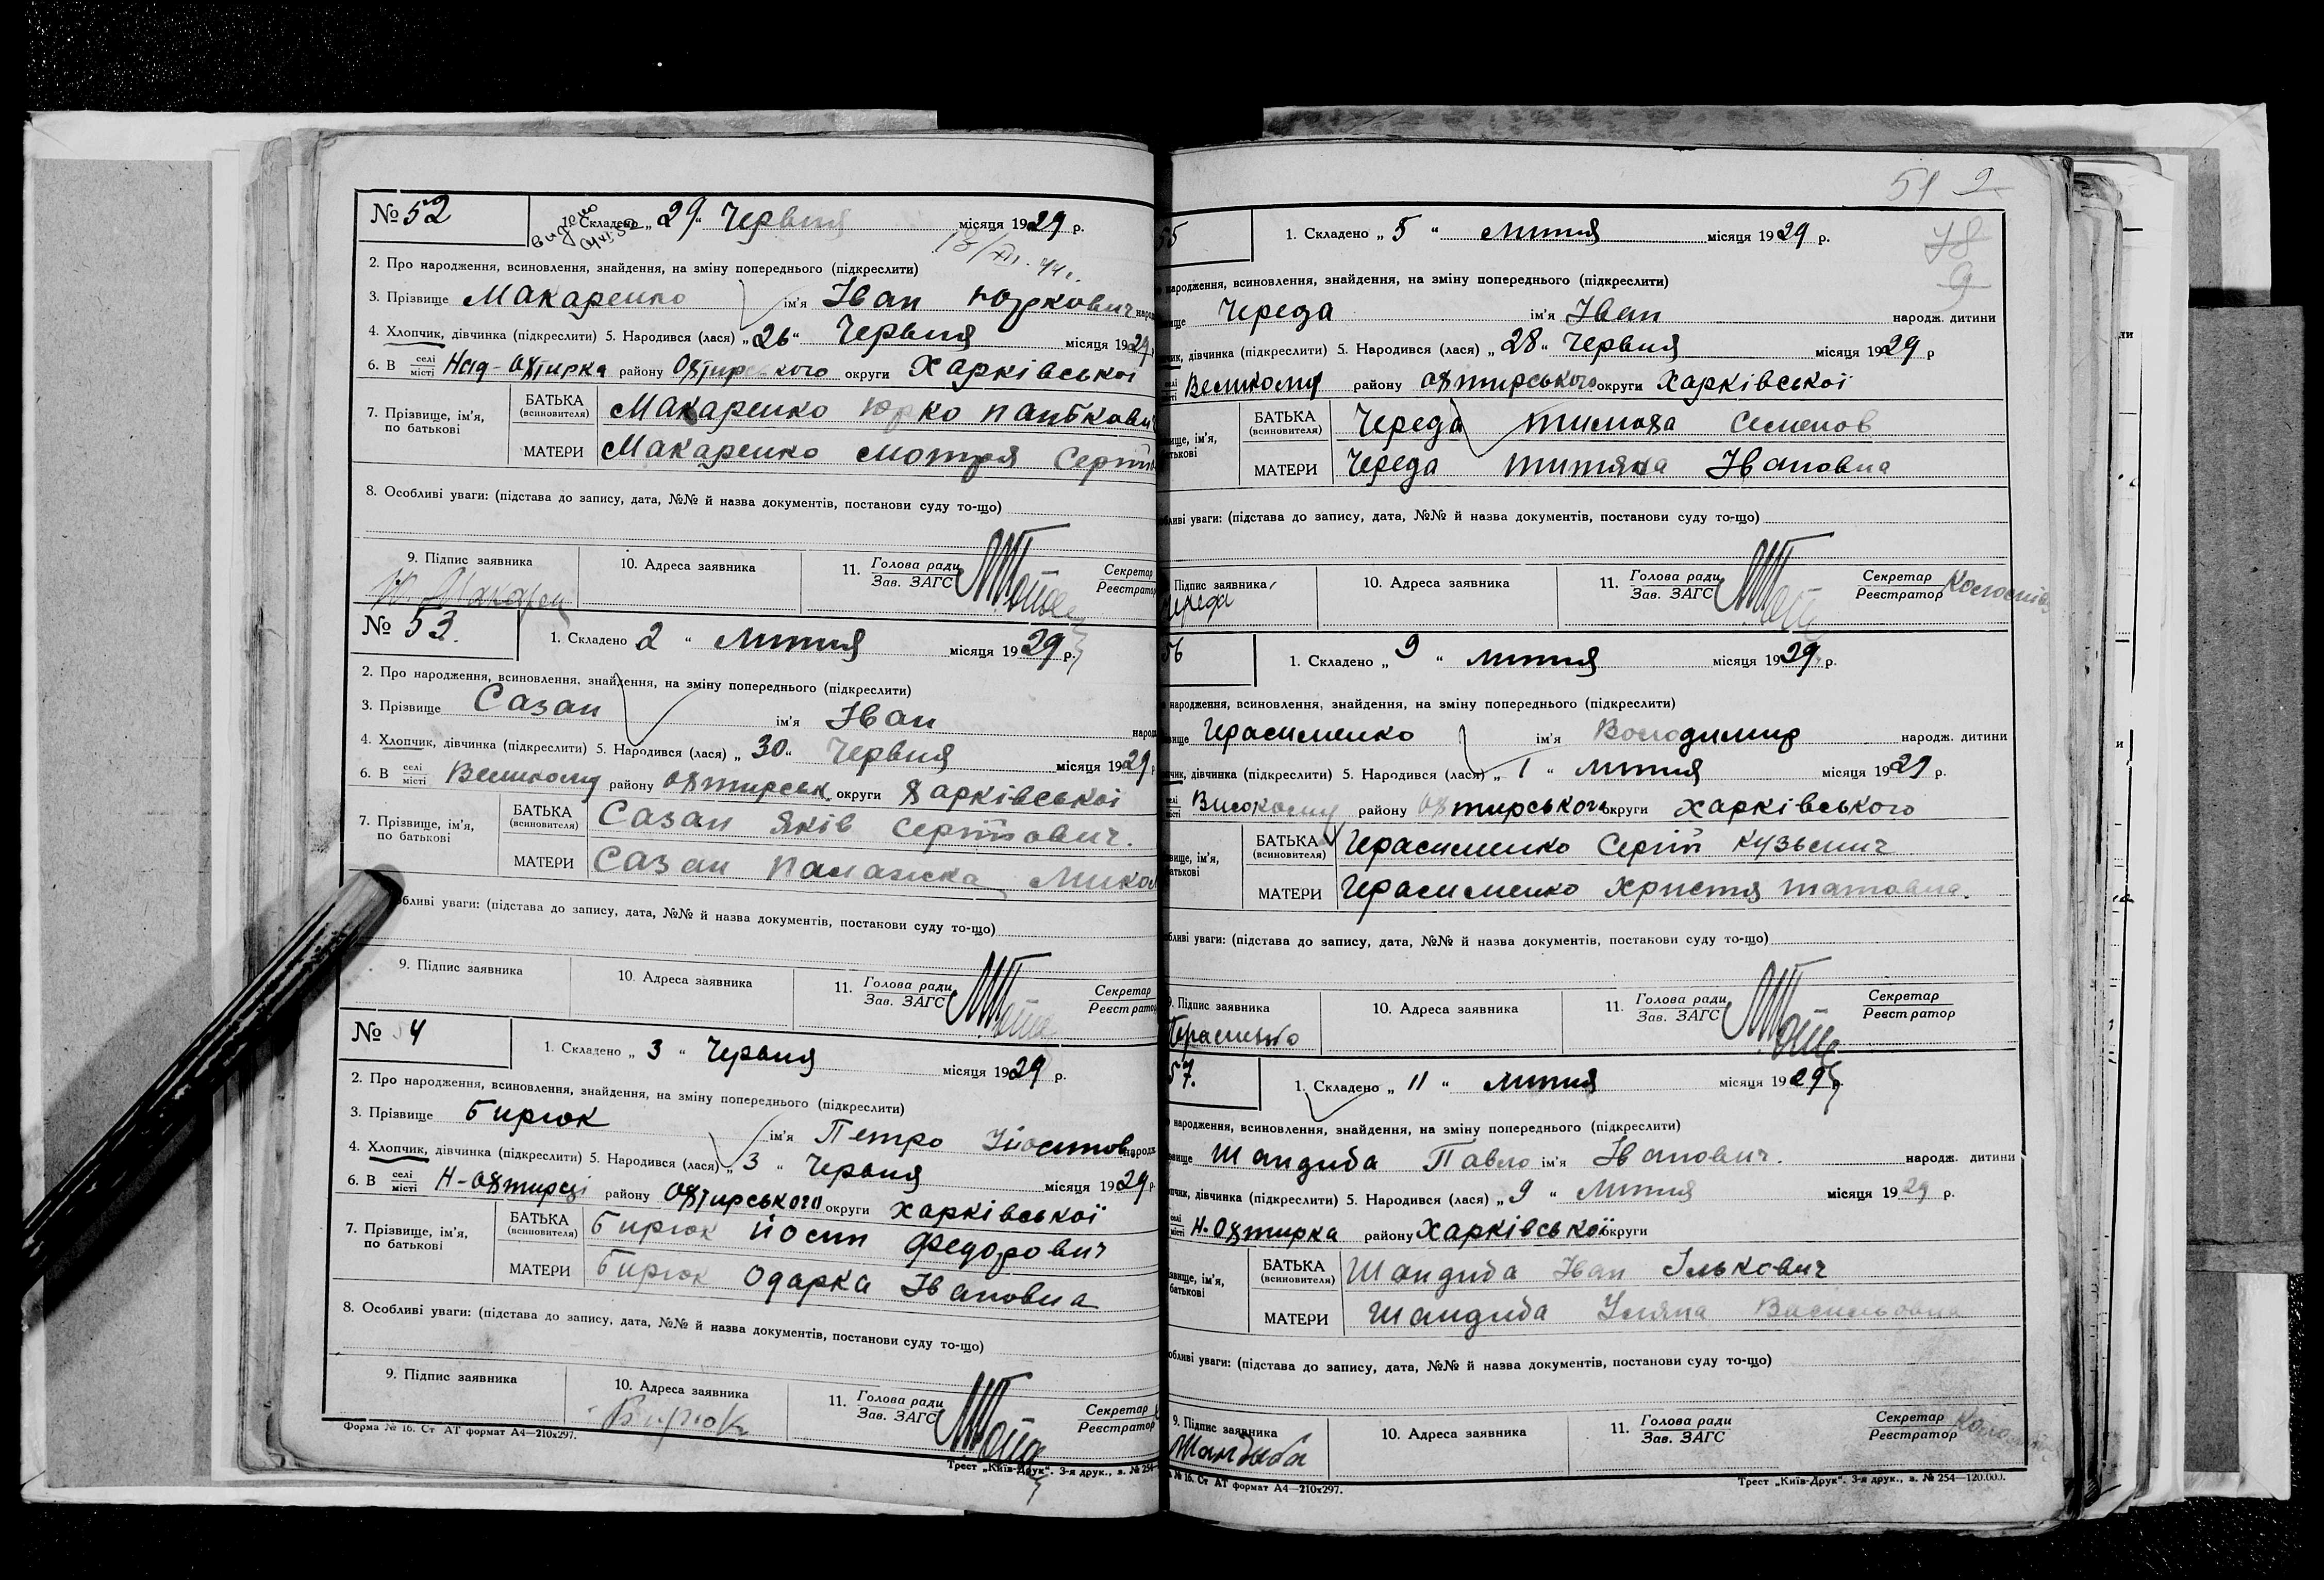 № 52
видано
1. Складено „ 29 “ Червня місяця 1929 р.
18/XI. 44 г.
2. Про народження, всиновлення, знайдення, на зміну попереднього (підкреслити)
3. Прізвище Макаренко ім'я Іван Юркович народ
4. Хлопчик, дівчинка (підкреслити) 5. Народився (лася) „ 26 “ Червня місяця 1929 р
6. В селі місті Над-Охтирка району Охтирського округи Харківської
7. Прізвище, ім'я, по батькові
БАТЬКА (всиновителя) Макаренко Юрко
МАТЕРИ Макаренко Мотря Сергій
8. Особливі уваги: (підстава до запису, дата, №№ й назва документів, постанови суду то-що)
9. Підпис заявника 10. Адреса заявника 11. Голова ради Зав. ЗАГС Секретар Реєстратор
Ю. Макарен
№ 53.
1. Складено 2 “ липня місяця 1929 р.
2. Про народження, всиновлення, знайдення, на зміну попереднього (підкреслити)
3. Прізвище Сазан ім'я Іван народ
4. Хлопчик, дівчинка (підкреслити) 5. Народився (лася) „ 30 “ Червня місяця 1929 р
6. В селі місті Великому району Охтирськ. округи Харківської
7. Прізвище, ім'я, по батькові
БАТЬКА (всиновителя) Сазан Яків Сергійович.
МАТЕРИ Сазан Палажка Микол
обливі уваги: (підстава до запису, дата, №№ й назва документів, постанови суду то-що)
9. Підпис заявника 10. Адреса заявника 11. Голова ради Зав. ЗАГС Секретар Реєстратор
№ 54
1. Складено „ 3 “ Червня місяця 1929 р.
2. Про народження, всиновлення, знайдення, на зміну попереднього (підкреслити)
3. Прізвище Бирюк ім'я Петро Йосипов народж
4. Хлопчик, дівчинка (підкреслити) 5. Народився (лася) „ 3 “ Червня місяця 1929 р.
6. В селі місті Н-Охтирці району Охтирського округи Харківської
7. Прізвище, ім'я, по батькові
БАТЬКА (всиновителя) Бирюк Йосип Федорович
МАТЕРИ Бирюк Одарка Івановна
8. Особливі уваги: (підстава до запису, дата, №№ й назва документів, постанови суду то-що)
9. Підпис заявника 10. Адреса заявника 11. Голова ради Зав. ЗАГС Секретар Реєстратор
Бирюк
Форма № 16. Ст АТ формат А4—210х297.
Трест „Київ-Друк“. 3-я друк., з. № 254
51
78
9
55
1. Складено „ 5 “ липня місяця 1929 р.
народження, всиновлення, знайдення, на зміну попереднього (підкреслити)
вище Череда ім'я Іван народж. дитини
чик, дівчинка (підкреслити) 5. Народився (лася) „ 28 “ Червня місяця 1929 р
селі місті Великому району Охтирського округи Харківської
вище, ім'я, батькові
БАТЬКА (всиновителя) Череда Тимоха Семенов
МАТЕРИ Череда Титяна Івановна
обливі уваги: (підстава до запису, дата, №№ й назва документів, постанови суду то-що)
Підпис заявника 10. Адреса заявника 11. Голова ради Зав. ЗАГС Секретар Реєстратор
Череда
56
1. Складено „ 9 “ липня місяця 1929 р.
народження, всиновлення, знайдення, на зміну попереднього (підкреслити)
вище Герасименко ім'я Володимир народж. дитини
чик, дівчинка (підкреслити) 5. Народився (лася) „ 1 “ липня місяця 1929 р.
селі місті Високому району Охтирського округи Харківського
вище, ім'я, батькові
БАТЬКА (всиновителя) Герасименко Сергій Кузьмич
МАТЕРИ Герасименко Христя
обливі уваги: (підстава до запису, дата, №№ й назва документів, постанови суду то-що)
9. Підпис заявника 10. Адреса заявника 11. Голова ради Зав. ЗАГС Секретар Реєстратор
57.
1. Складено „ 11 “ липня місяця 1929 р.
народження, всиновлення, знайдення, на зміну попереднього (підкреслити)
вище Шандиба Павло ім'я Іванович. народж. дитини
чик, дівчинка (підкреслити) 5. Народився (лася) „ 9 “ липня місяця 1929 р.
селі місті Н-Охтирка району Харківської округи
вище, ім'я, батькові
БАТЬКА (всиновителя) Шандиба Іван Ількович
МАТЕРИ Шандиба Уляна Васильовна
обливі уваги: (підстава до запису, дата, №№ й назва документів, постанови суду то-що)
9. Підпис заявника 10. Адреса заявника 11. Голова ради Зав. ЗАГС Секретар Реєстратор
Шандиба
№ 16. Ст АТ формат А4—210х297.
Трест „Київ-Друк“. 3-я друк., з. № 254—120.000.